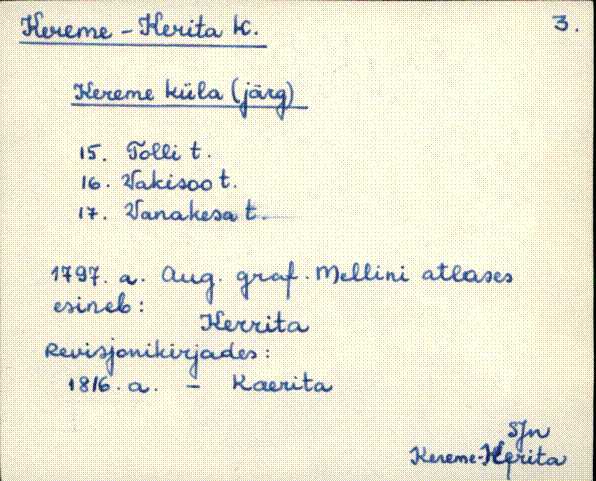 Kereme - Kerita k. 3.
Kereme küla (järg)
15. Tolli t.
16. Vakisoo t.
17. Vanakesa t.
1797. a. Aug. graf. Mellini atlases
esineb:
Kerrita
Revisjonikirjades:
1816. a. - Kaerita
SJn
Kereme-Kerita